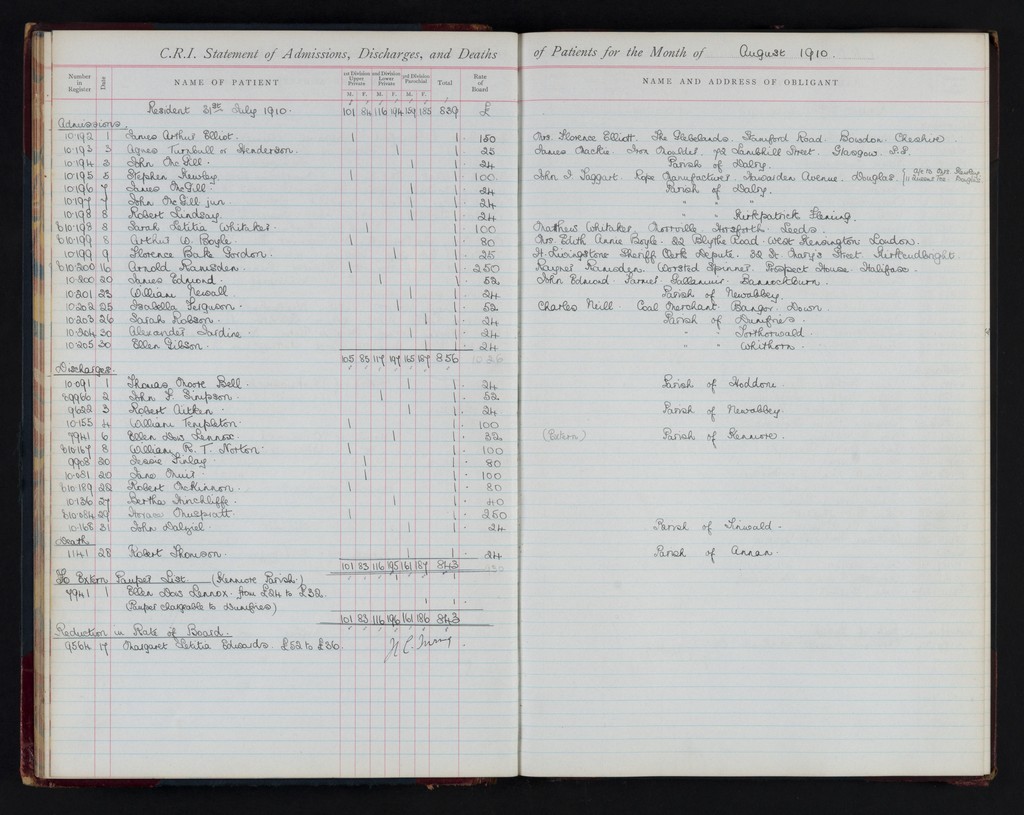 C.R.I. Statement of Admissions, Discharges, and Deaths of Patients for the Month of August 1910.
Number in Register Date NAME OF PATIENT 1st Division Upper Private M. F. 2nd Division Lower Private M. F. 3rd Division Parochial M. F. Total Rate of Board NAME AND ADDRESS OF OBLIGANT
Resident 31st July 1910. 101 84 116 194 159 185 839 £
Admissions.
10192 1 James Arthur Elliot. 1 1 150 Mrs. Florence Elliott. The Glebelands. Stamford Road. Bowdon. Cheshire.
10193 3 Agnes Turnbull or Henderson. 1 1 25 James Mackie. Iron Moulder. 72 Lambhill Street. Glasgow. S.S.
10194 3 John McGill. 1 1 24 Parish of Dalry.
10195 5 Stephen Newby. 1 1 100 John I. Taggart. Rope Manufacturer. Hawarden Avenue. Douglas.
10196 7 James McGill. 1 1 24 Parish of Dalry.
10197 7 John McGill jun. 1 1 24 " "
10198 8 Robert Lindsay. 1 1 24 " " Kirkpatrick Fleming.
b10198 8 Sarah Letitia Whitaker. 1 1 100 Matthew Whitaker. Horsforth. Leeds.
b10199 8 Arthur W. Boyle. 1 1 80 Mrs. Edith Annie Boyle. 82 Blythe Road. West Kensington London.
10199 9 Florence Bake Gordon. 1 1 25 H. Livingstone Sheriff Clerk Depute. 32 St. Mary's Street Kirkcudbright.
b10200 16 Arnold Ramsden. 1 1 250 Rayner Ramsden. Worsted Spinner. Prospect House. Halifax.
10200 20 James Edmond. 1 1 52 John Edmond. Farmer. Gallamuir. Bannockburn.
10201 23 William Newall. 1 24 Parish of Newabbey.
10202 25 Isabella Ferguson. 1 1 52 Charles Neill. Coal Merchant. Bangor. Down.
10203 26 Sarah Robson. 1 1 24 Parish of Dumfries.
10204 30 Alexander Jardine. 1 1 24 " " Torthorwald.
10205 30 Ellen Gibson. 1 1 24 " " Whithorn.
105 85 117 197 165 187 856
Discharges.
10091 1 Thomas Moore Bell. 1 1 24 Parish of Hoddom.
2 John F. Simpson. 1 1 52
9622 3 Robert Aitken. 1 1 24 Parish of Newabbey.
10155 4 William Templeton. 1 1 100
7941 6 Ellen Dow Lennox. 1 1 32 (Extern) Parish of Kenmore.
b10167 8 William R. T. Norton. 1 1 100
9908 20 Jessie Finlay. 1 1 80
10031 20 Jane Muir. 1 1 100
b10189 22 Robert McKinnon. 1 1 80
10136 27 Bertha Hinchliffe. 1 1 40
b10084 29 Horace Muspratt. 1 1 250
10168 31 John Dalziel. 1 1 24 Parish of Tinwald.
Death
1141 28 Robert Thomson. 1 1 24 Parish of Annan.
101 83 116 195 161 187 843
To Extern Pauper List (Kenmore Parish.)
7941 1 Ellen Dow Lennox. from £24 to £32.
(Pauper chargeable to Dumfries) 1 1
101 83 116 196 161 186 843
Reduction in Rate of Board.
9564 17 Margaret Letitia Edwards. £52 to £36.